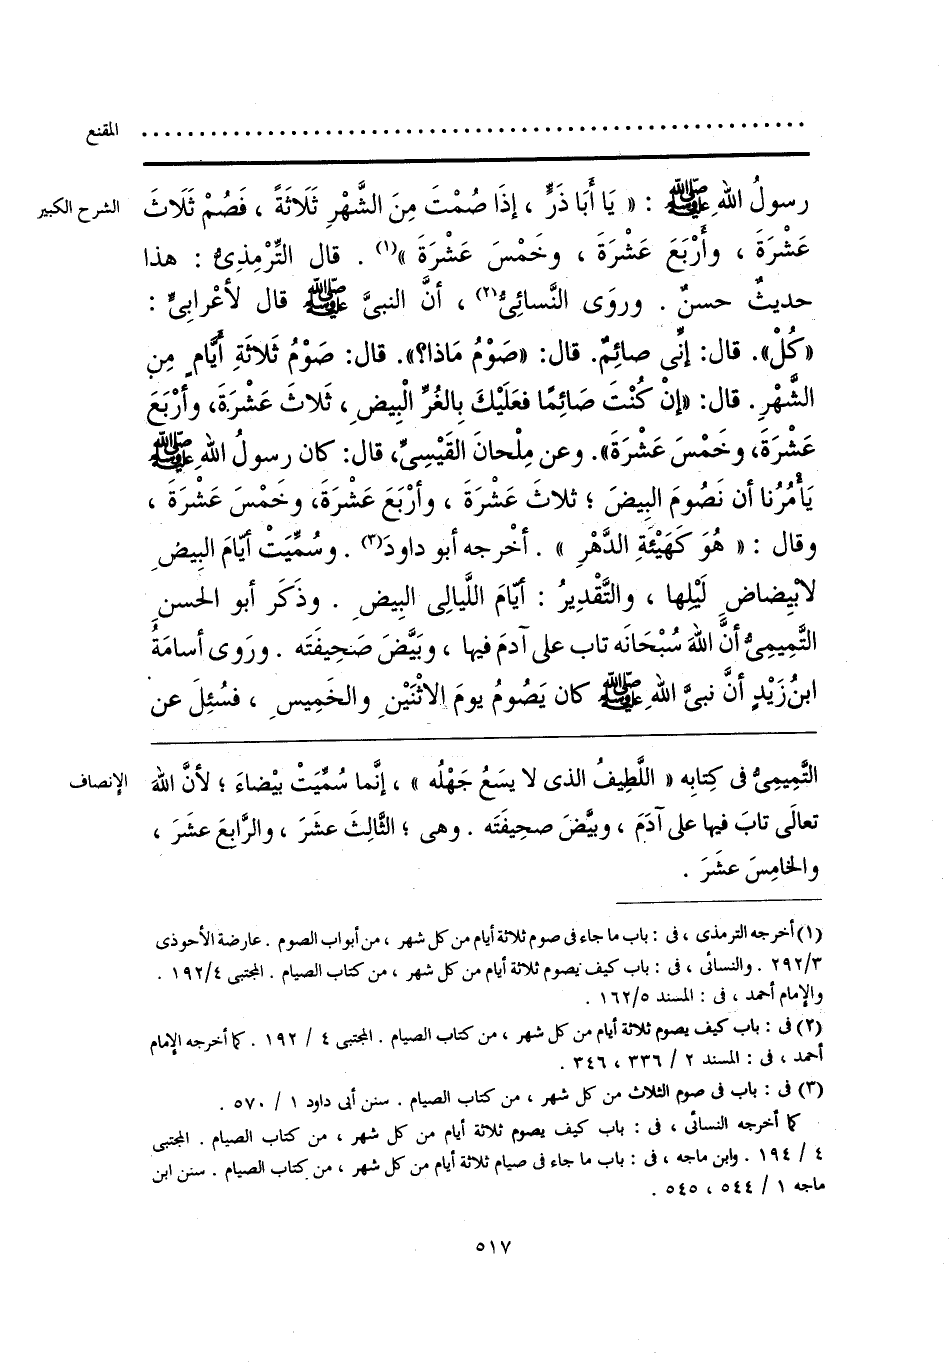 المقنع ............................................................
رسولُ اللهِ ﷺ : « يَا أَبَا ذَرٍّ ، إذَا صُمْتَ مِنَ الشَّهْرِ ثَلَاثَةً ، فَصُمْ ثَلَاثَ الشرح الكبير
عَشْرَةَ ، وأَرْبَعَ عَشْرَةَ ، وخَمْسَ عَشْرَةَ »(١) . قال التِّرْمِذِىُّ : هذا
حديثٌ حسنٌ . وروَى النَّسائِىُّ(٢) ، أنَّ النبىَّ ﷺ قال لأعْرابِىٍّ :
«كُلْ». قال: إنِّى صائِمٌ. قال: «صَوْمُ مَاذا؟». قال: صَوْمُ ثَلاثَةِ أيَّامٍ مِنِ
الشَّهْرِ. قال: «إنْ كُنْتَ صَائِمًا فعَلَيْكَ بِالغُرِّ الْبِيضِ، ثَلاثَ عَشْرَةَ، وأرْبَعَ
عَشْرَةَ، وخَمْسَ عَشْرَةَ». وعن مِلْحانَ القَيْسِىِّ، قال: كان رسولُ اللهِ ﷺ
يَأْمُرُنا أن نَصُومَ البِيضَ ؛ ثلاثَ عَشْرَةَ ، وأرْبَعَ عَشْرَةَ، وخَمْسَ عَشْرَةَ ،
وقال : « هُوَ كَهَيْئَةِ الدَّهْرِ » . أخْرجه أبو داودَ(٣) . وسُمِّيَتْ أيّامَ البِيضِ
لابْيِضاضِ لَيْلِها ، والتَّقْدِيرُ : أيّامَ اللَّيالِى البِيضِ . وذَكَر أبو الحسنِ
التَّمِيمِىُّ أنَّ اللهَ سُبْحَانَه تاب على آدمَ فيها ، وبَيَّضَ صَحِيفَتَه . ورَوى أسامَةُ
ابنُ زَيْدٍ أنَّ نبىَّ اللهِ ﷺ كان يَصُومُ يومَ الاثْنَيْنِ والخَمِيسِ ، فسُئِلَ عن
التَّمِيمِىُّ فى كِتابِه « اللَّطِيفُ الذى لا يسَعُ جَهْلُه » ، إنَّما سُمِّيَتْ بِيْضاءَ ؛ لأنَّ اللهَ الإنصاف
تعالَى تابَ فيها على آدَمَ ، وبيَّضَ صحِيفَتَه . وهى ؛ الثَّالِثَ عشَرَ ، والرَّابِعَ عشَرَ ،
والخامِسَ عشَرَ .
(١) أخرجه الترمذى ، فى : باب ما جاء فى صوم ثلاثة أيام من كل شهر ، من أبواب الصوم . عارضة الأحوذى
٢٩٢/٣ . والنسائى ، فى : باب كيف يصوم ثلاثة أيام من كل شهر ، من كتاب الصيام . المجتبى ١٩٢/٤ .
والإمام أحمد ، فى : المسند ١٦٢/٥ .
(٢) فى : باب كيف يصوم ثلاثة أيام من كل شهر ، من كتاب الصيام . المجتبى ٤ / ١٩٢ . كما أخرجه الإمام
أحمد ، فى : المسند ٢ / ٣٣٦ ، ٣٤٦ .
(٣) فى : باب فى صوم الثلاث من كل شهر ، من كتاب الصيام . سنن أبى داود ١ / ٥٧٠ .
كما أخرجه النسائى ، فى : باب كيف يصوم ثلاثة أيام من كل شهر ، من كتاب الصيام . المجتبى
٤ / ١٩٤ . وابن ماجه ، فى : باب ما جاء فى صيام ثلاثة أيام من كل شهر ، من كتاب الصيام . سنن ابن
ماجه ١ / ٥٤٤ ، ٥٤٥ .
٥١٧